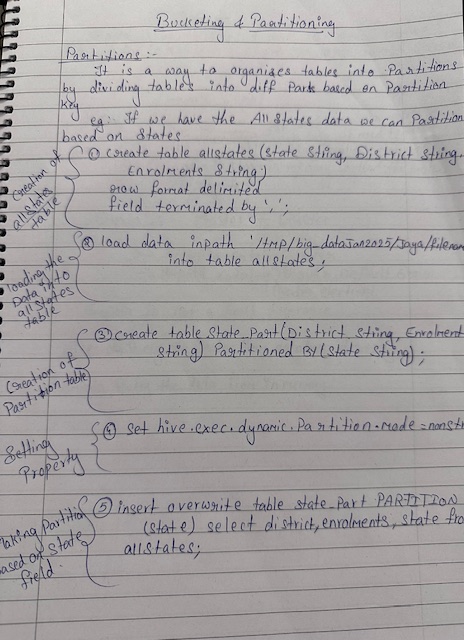 Bucketing & Partitioning
Partitions :-
It is a way to organises tables into Partitions
by dividing tables into diff Parts based on Partition
key
eg: If we have the All States data we can Partition
based on States
Creation of
allstates
table
① create table allstates (state string, District string,
Enrolments string)
row format delimited
field terminated by ',';
loading the
Data into
allstates
table
② load data inpath '/tmp/big_dataJan2025/Jaya/filenam
into table allstates;
Creation of
Partition table
③ create table State_Part (District string, Enrolment
string) Partitioned By (state string);
Setting
Property
④ set hive.exec.dynamic.Partition.mode=nonst
Making Partition
based on state
field.
⑤ insert overwrite table state_part PARTITION
(state) select district, enrolments, state fro
allstates;